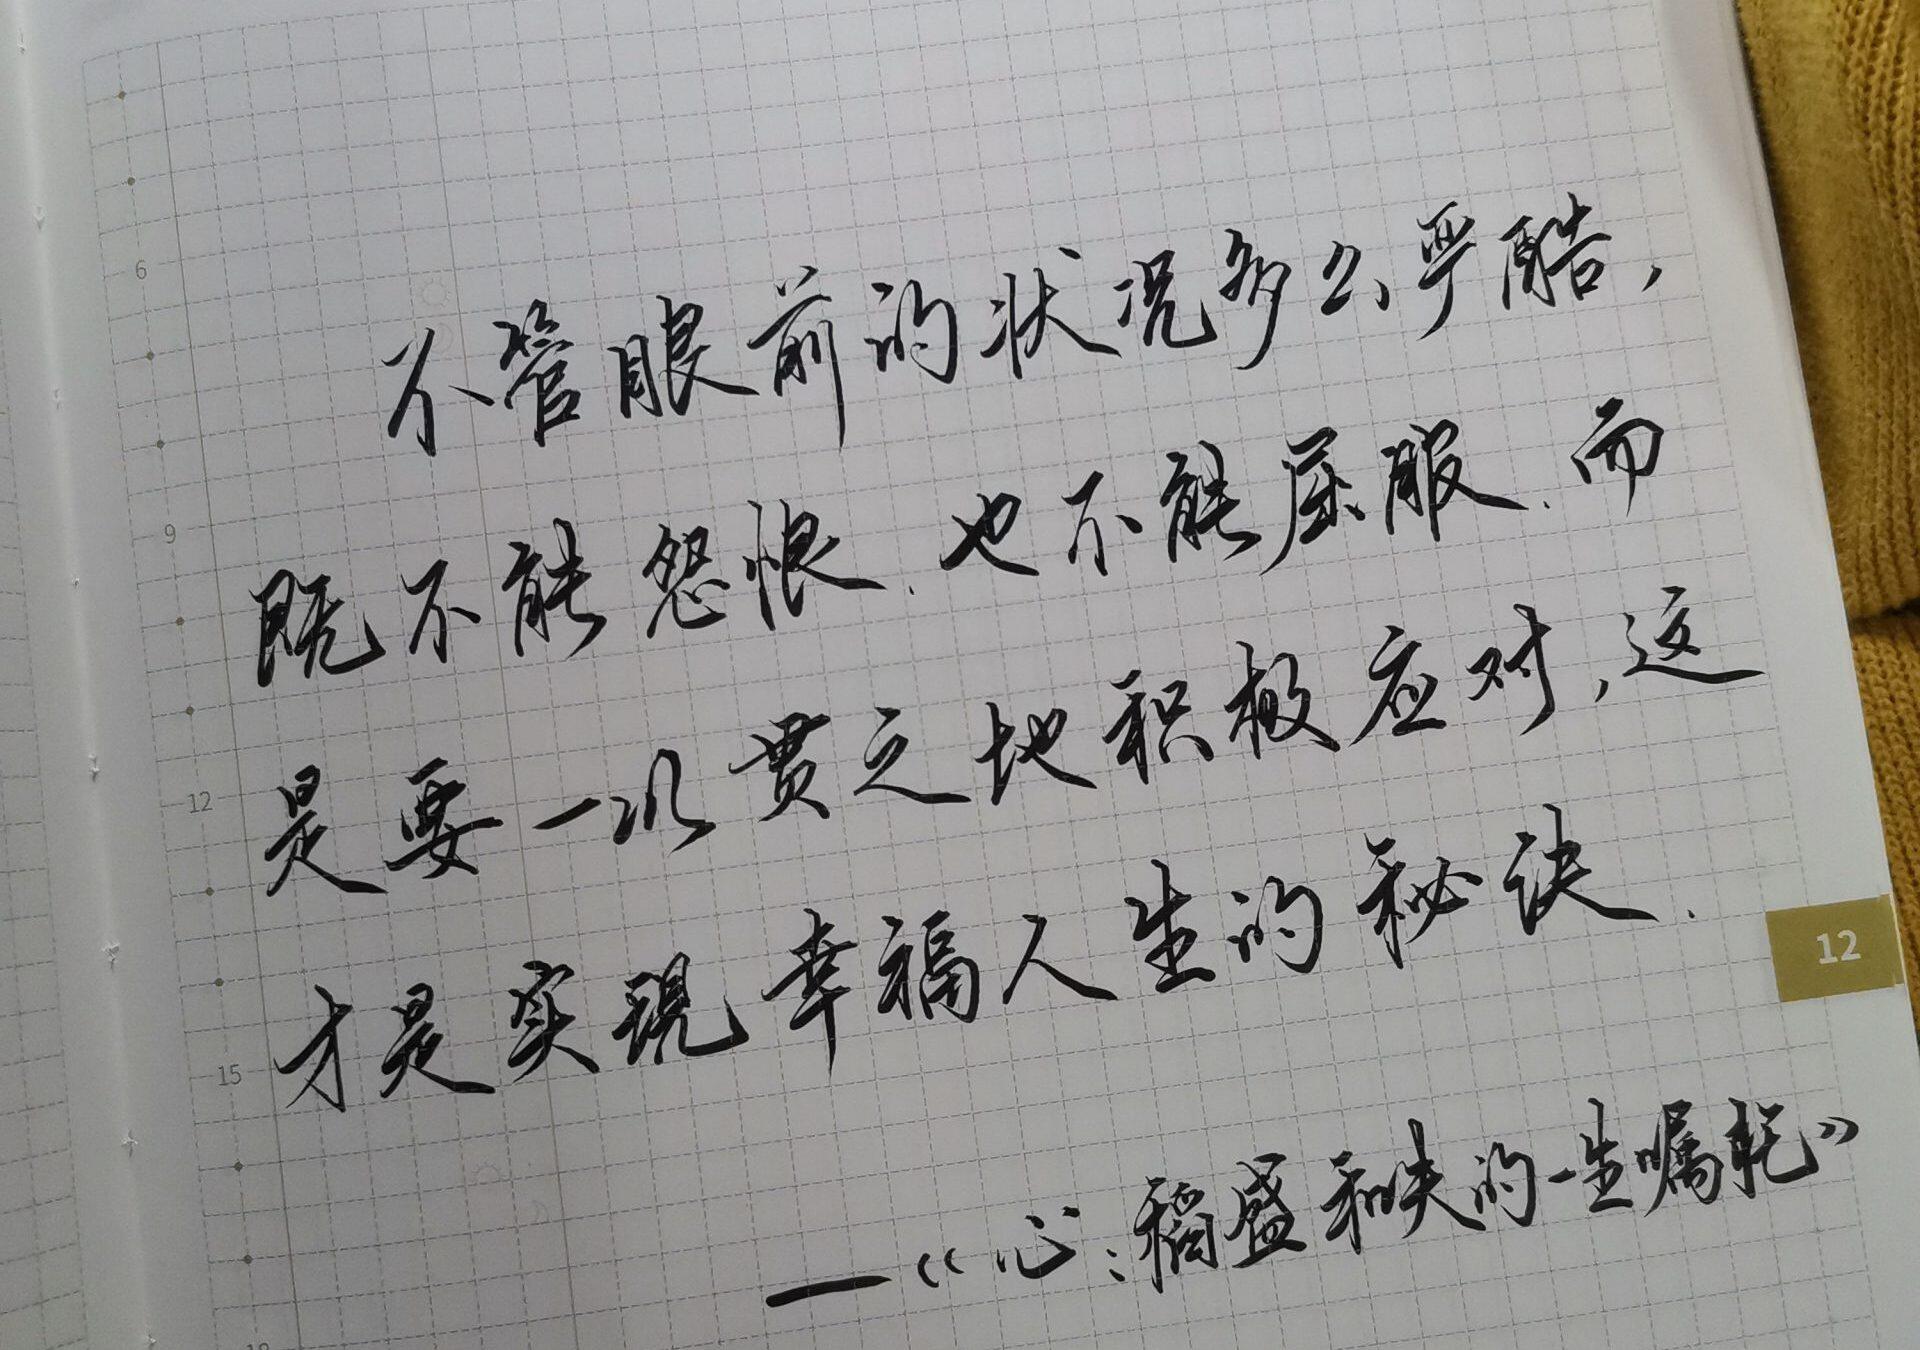 6
不管眼前的状况多么严酷,
9
既不能怨恨.也不能屈服.而
12
是要一以贯之地积极应对,这
才是实现幸福人生的秘诀.
12
15
—《心:稻盛和夫的一生嘱托》